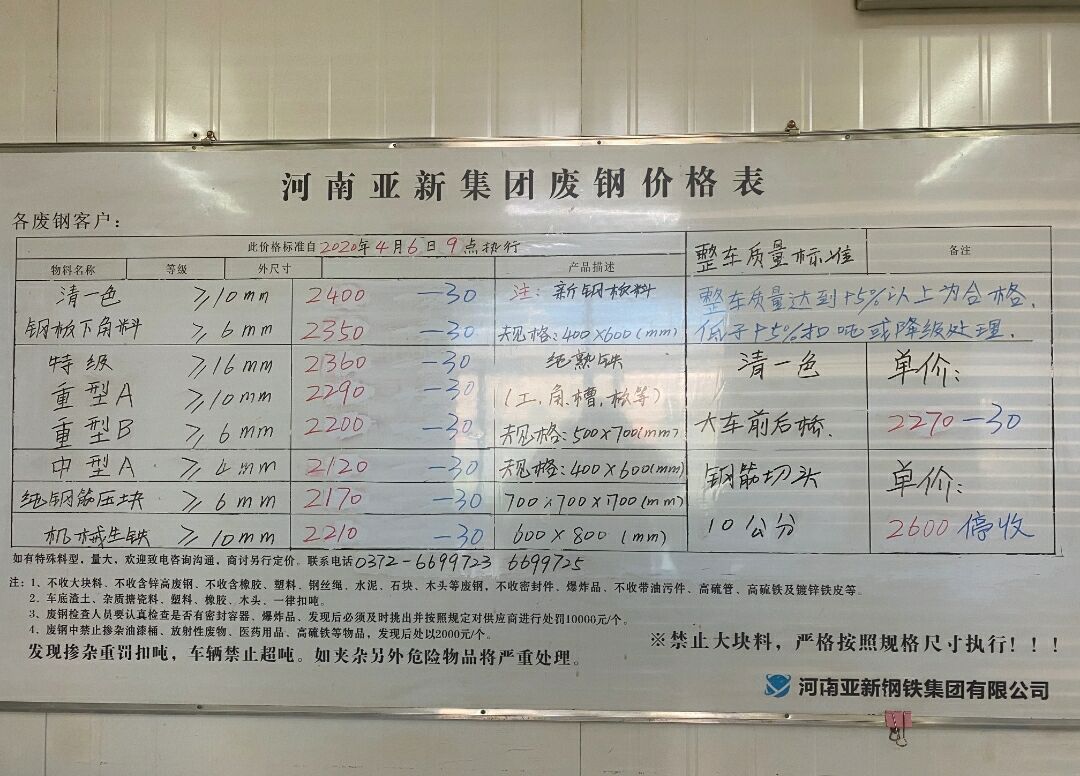 河南亚新集团废钢价格表
各废钢客户：
此价格标准自2020年4月6日9点执行 整车质量标准 备注
物料名称 等级 外尺寸 产品描述
清一色 ≥10mm 2400 -30 注：新钢板料 整车质量达到+5%以上为合格，
钢板下角料 ≥6mm 2350 -30 规格：400×600(mm) 低于+5%扣吨或降级处理．
特级 ≥16mm 2360 -30 纯熟铁 清一色 单价：
重型A ≥10mm 2290 -30 (工、角、槽、板等)
重型B ≥6mm 2200 -30 规格：500×700(mm) 大车前后桥． 2270-30
中型A ≥4mm 2120 -30 规格：400×600(mm) 钢筋切头 单价：
纯钢筋压块 ≥6mm 2170 -30 700×700×700(mm)
机械生铁 ≥10mm 2210 -30 600×800 (mm) 10公分 2600停收
如有特殊料型，量大，欢迎致电咨询沟通，商讨另行定价。联系电话0372-6699723 6699725
注：1、不收大块料、不收含锌高废钢、不收含橡胶、塑料、钢丝绳、水泥、石块、木头等废钢，不收密封件、爆炸品、不收带油污件、高硫管、高硫铁及镀锌铁皮等。
2、车底渣土、杂质搪瓷料、塑料、橡胶、木头、一律扣吨。
3、废钢检查人员要认真检查是否有密封容器、爆炸品、发现后必须及时挑出并按照规定对供应商进行处罚10000元/个。
4、废钢中禁止掺杂油漆桶、放射性废物、医药用品、高硫铁等物品，发现后处以2000元/个。
发现掺杂重罚扣吨，车辆禁止超吨。如夹杂另外危险物品将严重处理。
※禁止大块料，严格按照规格尺寸执行！！！
河南亚新钢铁集团有限公司